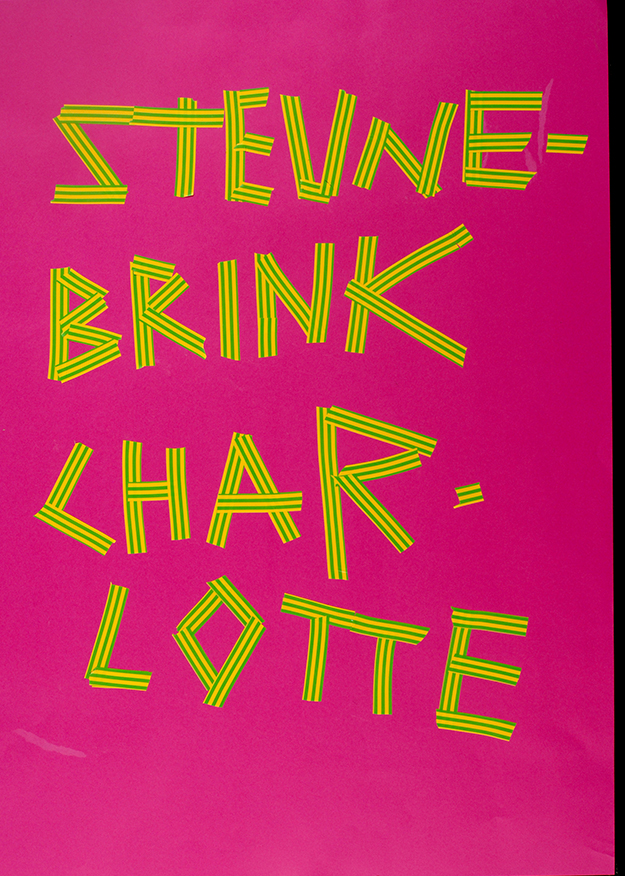 STEUNE-
BRINK
CHAR.
LOTTE